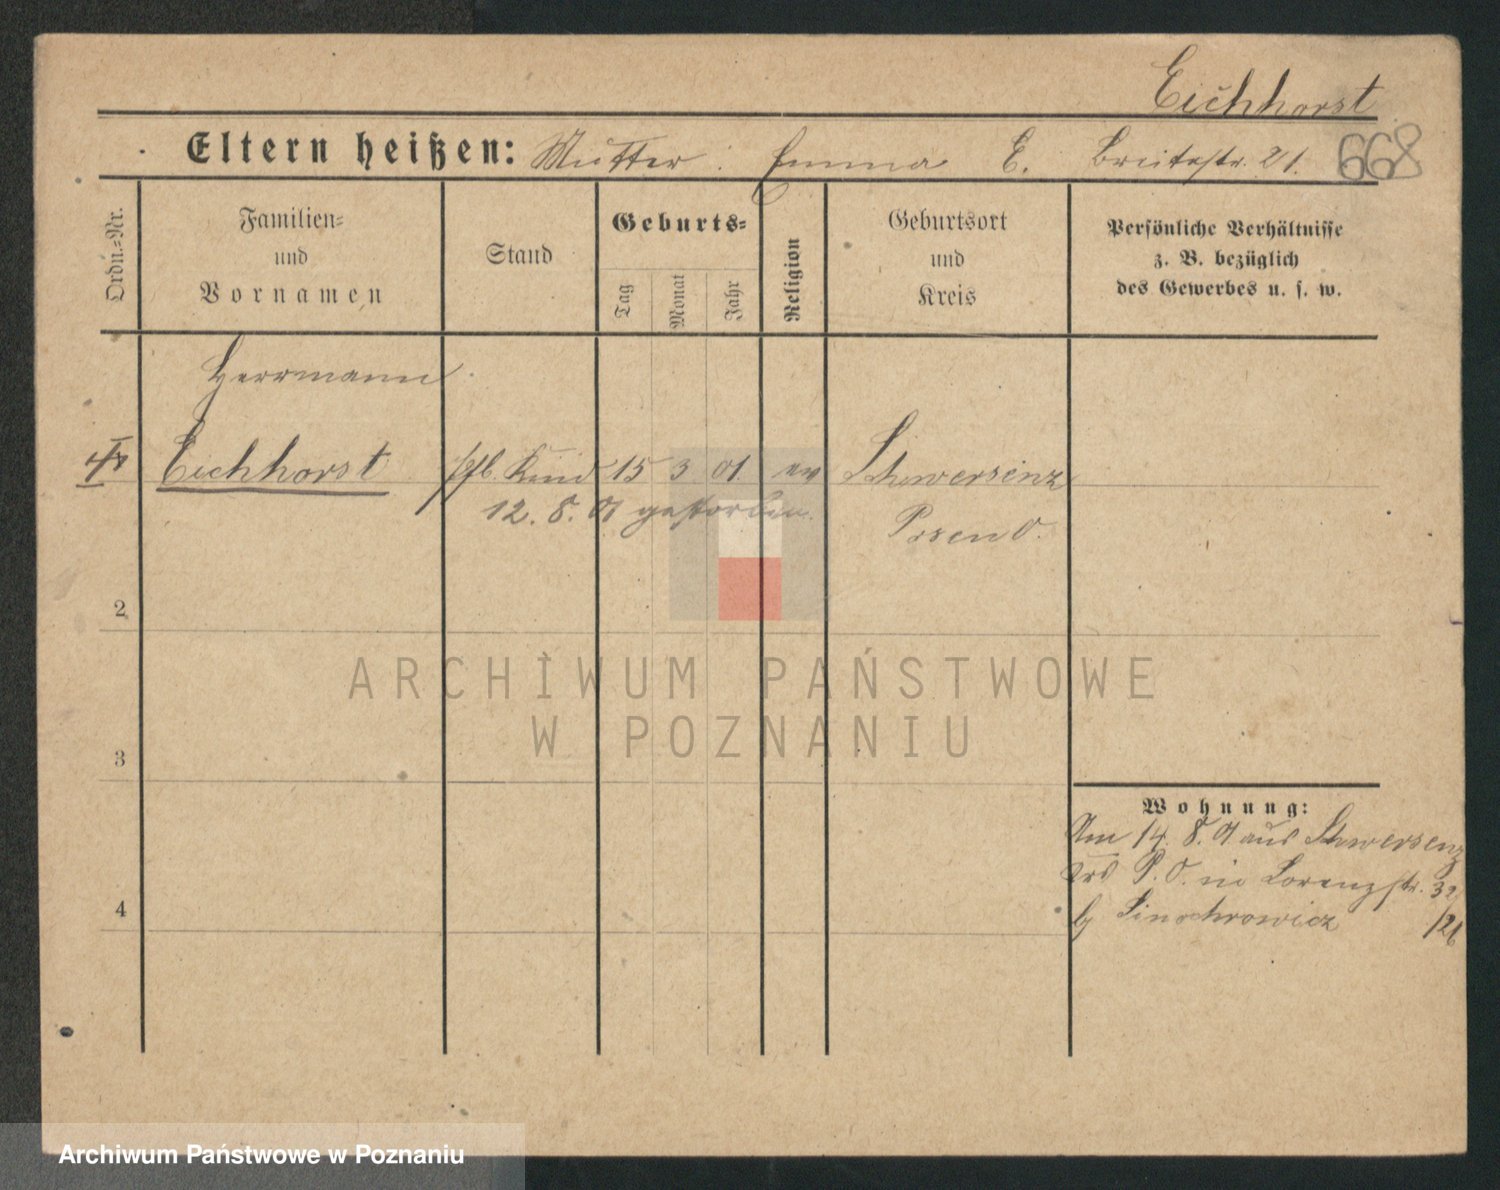 Eichhorst
Eltern heißen: Mutter: Emma E. Breitestr. 21. 668
Ordn.-Nr.
Familien- und Vornamen
Stand
Geburts-
Tag
Monat
Jahr
Religion
Geburtsort und Kreis
Persönliche Verhältnisse
z. B. bezüglich
des Gewerbes u. s. w.
Herrmann
Eichhorst pfl. Kind 15 3 01 ev Schwersenz
12. 8. 01 gestorben. Posen O.
2
3
4
ARCHIWUM PAŃSTWOWE
W POZNANIU
Wohnung:
Am 14. 8. 01 aus Schwersenz
Krs P. O. in Lorenzstr. 32
b/
/26
Archiwum Państwowe w Poznaniu